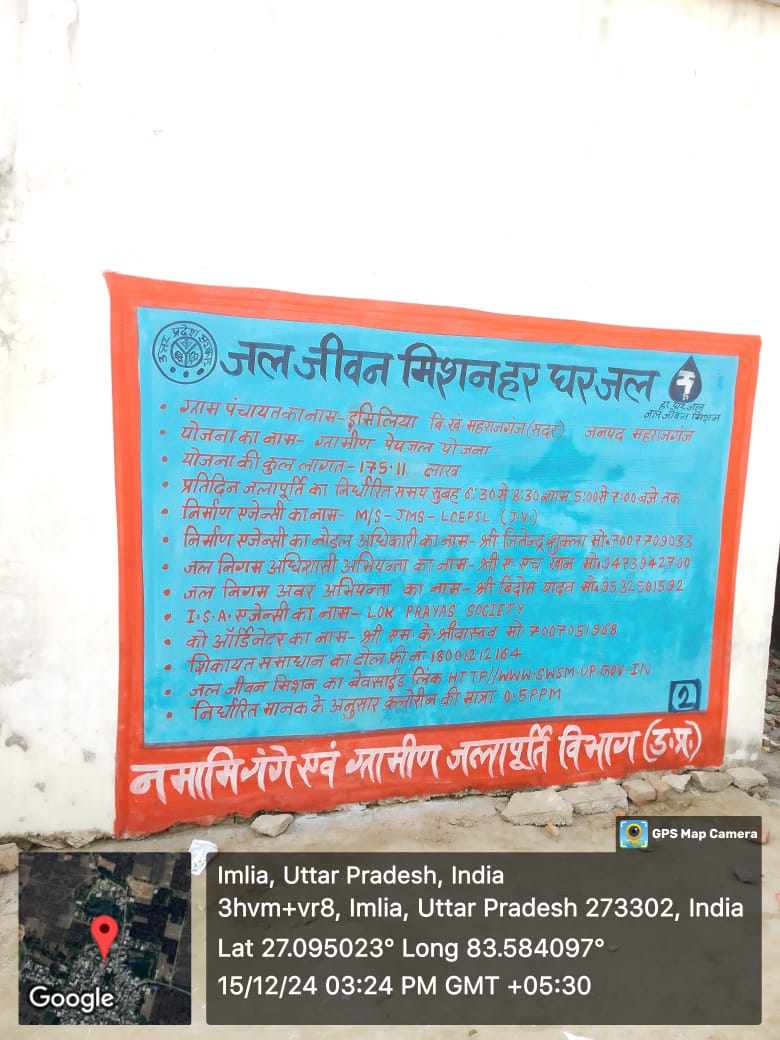 उत्तर प्रदेश सरकार
जल जीवन मिशन हर घर जल
हर घर जल
जल जीवन मिशन
• ग्राम पंचायत का नाम- इमिलिया वि.खं. महराजगंज (सदर) जनपद महराजगंज
• योजना का नाम- ग्रामीण पेयजल योजना
• योजना की कुल लागत- 175.11 लाख
• प्रतिदिन जलापूर्ति का निर्धारित समय सुबह 6:30 से 8:30 शाम 5:00 से 7:00 बजे तक
• निर्माण एजेन्सी का नाम- M/S-JMS-LCEPSL (J.V.)
• निर्माण एजेन्सी का नोडल अधिकारी का नाम- श्री जितेन्द्र शुक्ला मो. 7007709033
• जल निगम अधिशासी अभियन्ता का नाम- श्री ए. एच. खान मो. 9473942700
• जल निगम अवर अभियन्ता का नाम- श्री बिदोस यादव मो. 9532501592
• I.S.A. एजेन्सी का नाम- LOK PRAYAS SOCIETY
• को ऑर्डिनेटर का नाम- श्री एम. के. श्रीवास्तव मो. 7007051968
• शिकायत समाधान का टोल फ्री नं. 18001212164
• जल जीवन मिशन का बेवसाईड लिंक HTTP//WWW.SWSM.UP.GOV.IN
• निर्धारित मानक के अनुसार क्लोरीन की मात्रा 0.5 PPM
2
नमामि गंगे एवं ग्रामीण जलापूर्ति विभाग (उ.प्र.)
GPS Map Camera
Imlia, Uttar Pradesh, India
3hvm+vr8, Imlia, Uttar Pradesh 273302, India
Lat 27.095023° Long 83.584097°
15/12/24 03:24 PM GMT +05:30
Google